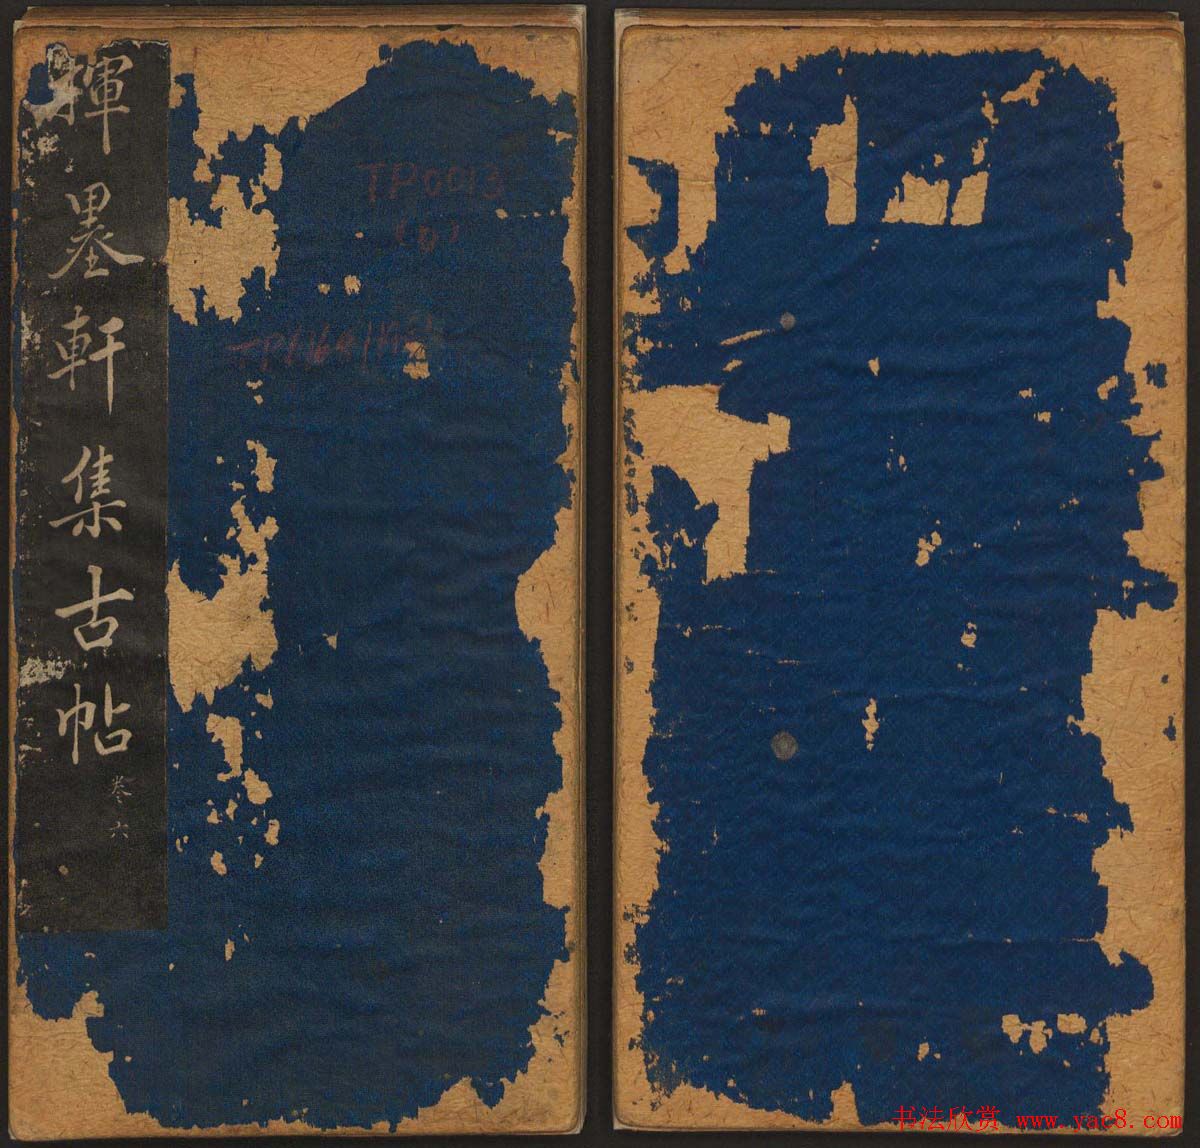 揮墨軒集古帖
卷六
TP0013
(6)
书法欣赏 www.yac8.com